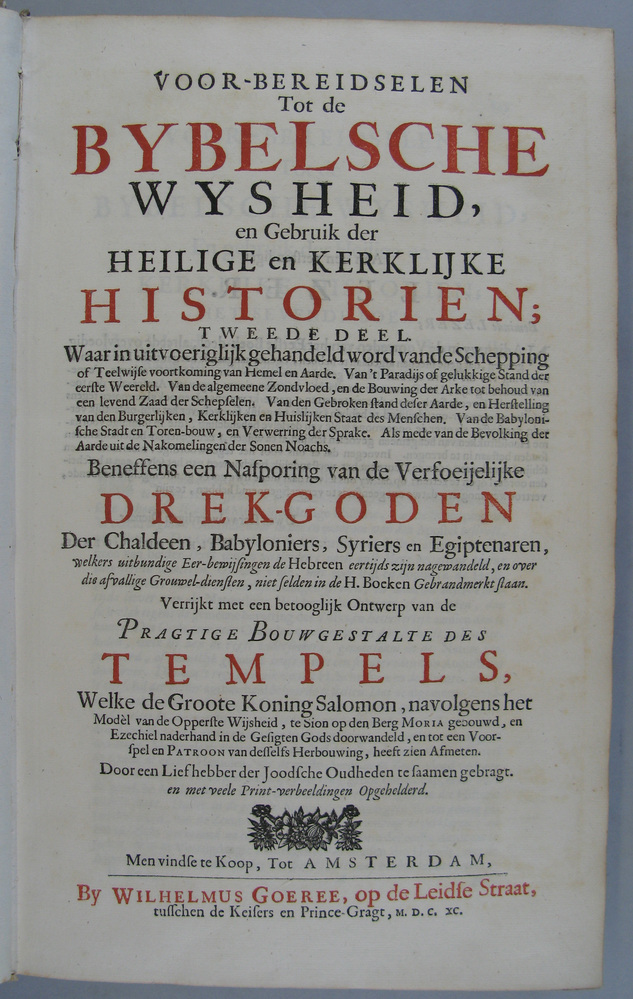 VOOR-BEREIDSELEN
Tot de
BYBELSCHE
WYSHEID,
en Gebruik der
HEILIGE en KERKLIJKE
HISTORIEN;
TWEEDE DEEL.
Waar in uitvoeriglijk gehandeld word vande Schepping
of Teelwijſe voortkoming van Hemel en Aarde. Van 't Paradijs of gelukkige Stand der
eerſte Weereld. Van de algemeene Zondvloed, en de Bouwing der Arke tot behoud van
een levend Zaad der Schepſelen. Van den Gebroken ſtand deſer Aarde, en Herſtelling
van den Burgerlijken, Kerklijken en Huislijken Staat des Menſchen. Van de Babyloni-
ſche Stadt en Toren-bouw, en Verwerring der Sprake. Als mede van de Bevolking der
Aarde uit de Nakomelingen der Sonen Noachs.
Beneffens een Naſporing van de Verfoeijelijke
DREK-GODEN
Der Chaldeen, Babyloniers, Syriers en Egiptenaren,
welkers uitbundige Eer-bewijſingen de Hebreen eertijds zijn nagewandeld, en over
die afvallige Grouwel-dienſten, niet ſelden in de H. Boeken Gebrandmerkt ſtaan.
Verrijkt met een betooglijk Ontwerp van de
PRAGTIGE BOUWGESTALTE DES
TEMPELS,
Welke de Groote Koning Salomon, navolgens het
Modèl van de Opperſte Wijsheid, te Sion op den Berg MORIA gebouwd, en
Ezechiel naderhand in de Geſigten Gods doorwandeld, en tot een Voor-
ſpel en PATROON van desſelfs Herbouwing, heeft zien Afmeten.
Door een Liefhebber der Joodſche Oudheden te ſaamen gebragt.
en met veele Print-verbeeldingen Opgehelderd.
Men vindſe te Koop, Tot AMSTERDAM,
By WILHELMUS GOEREE, op de Leidſe Straat,
tuſſchen de Keiſers en Prince-Gragt, M. D. C. XC.